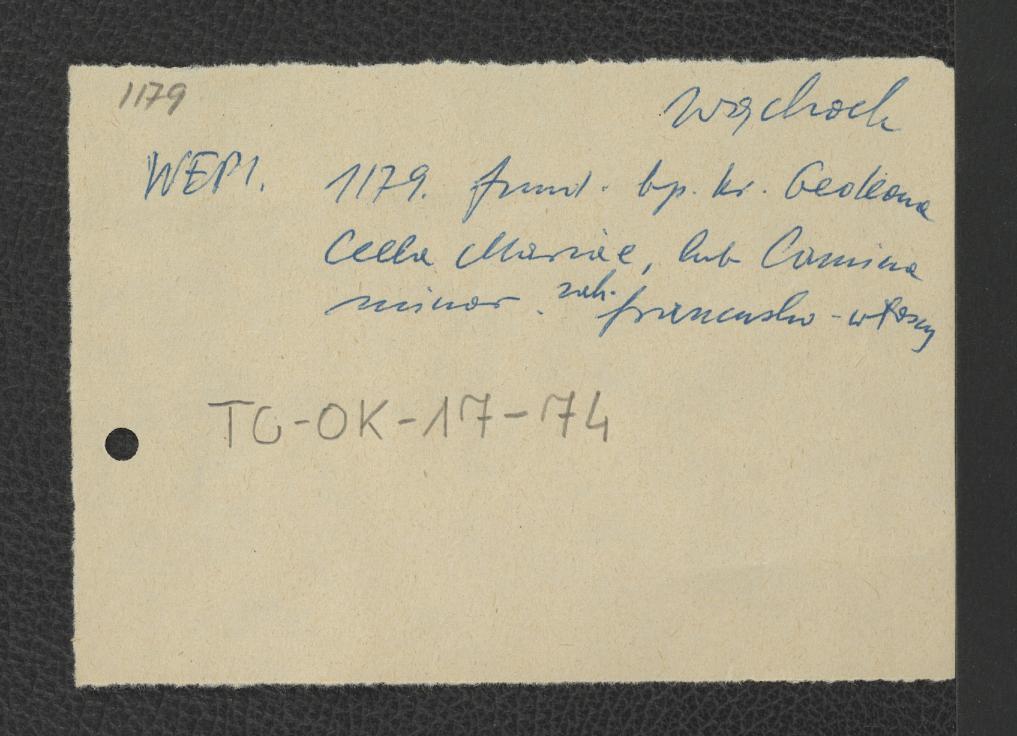 1179
Wąchock
WEPI. 1179. fund. bp. kr. Gedeona
Cella Mariae, lub Camina
minor. zak. francusko-włoscy
TC-OK-17-74